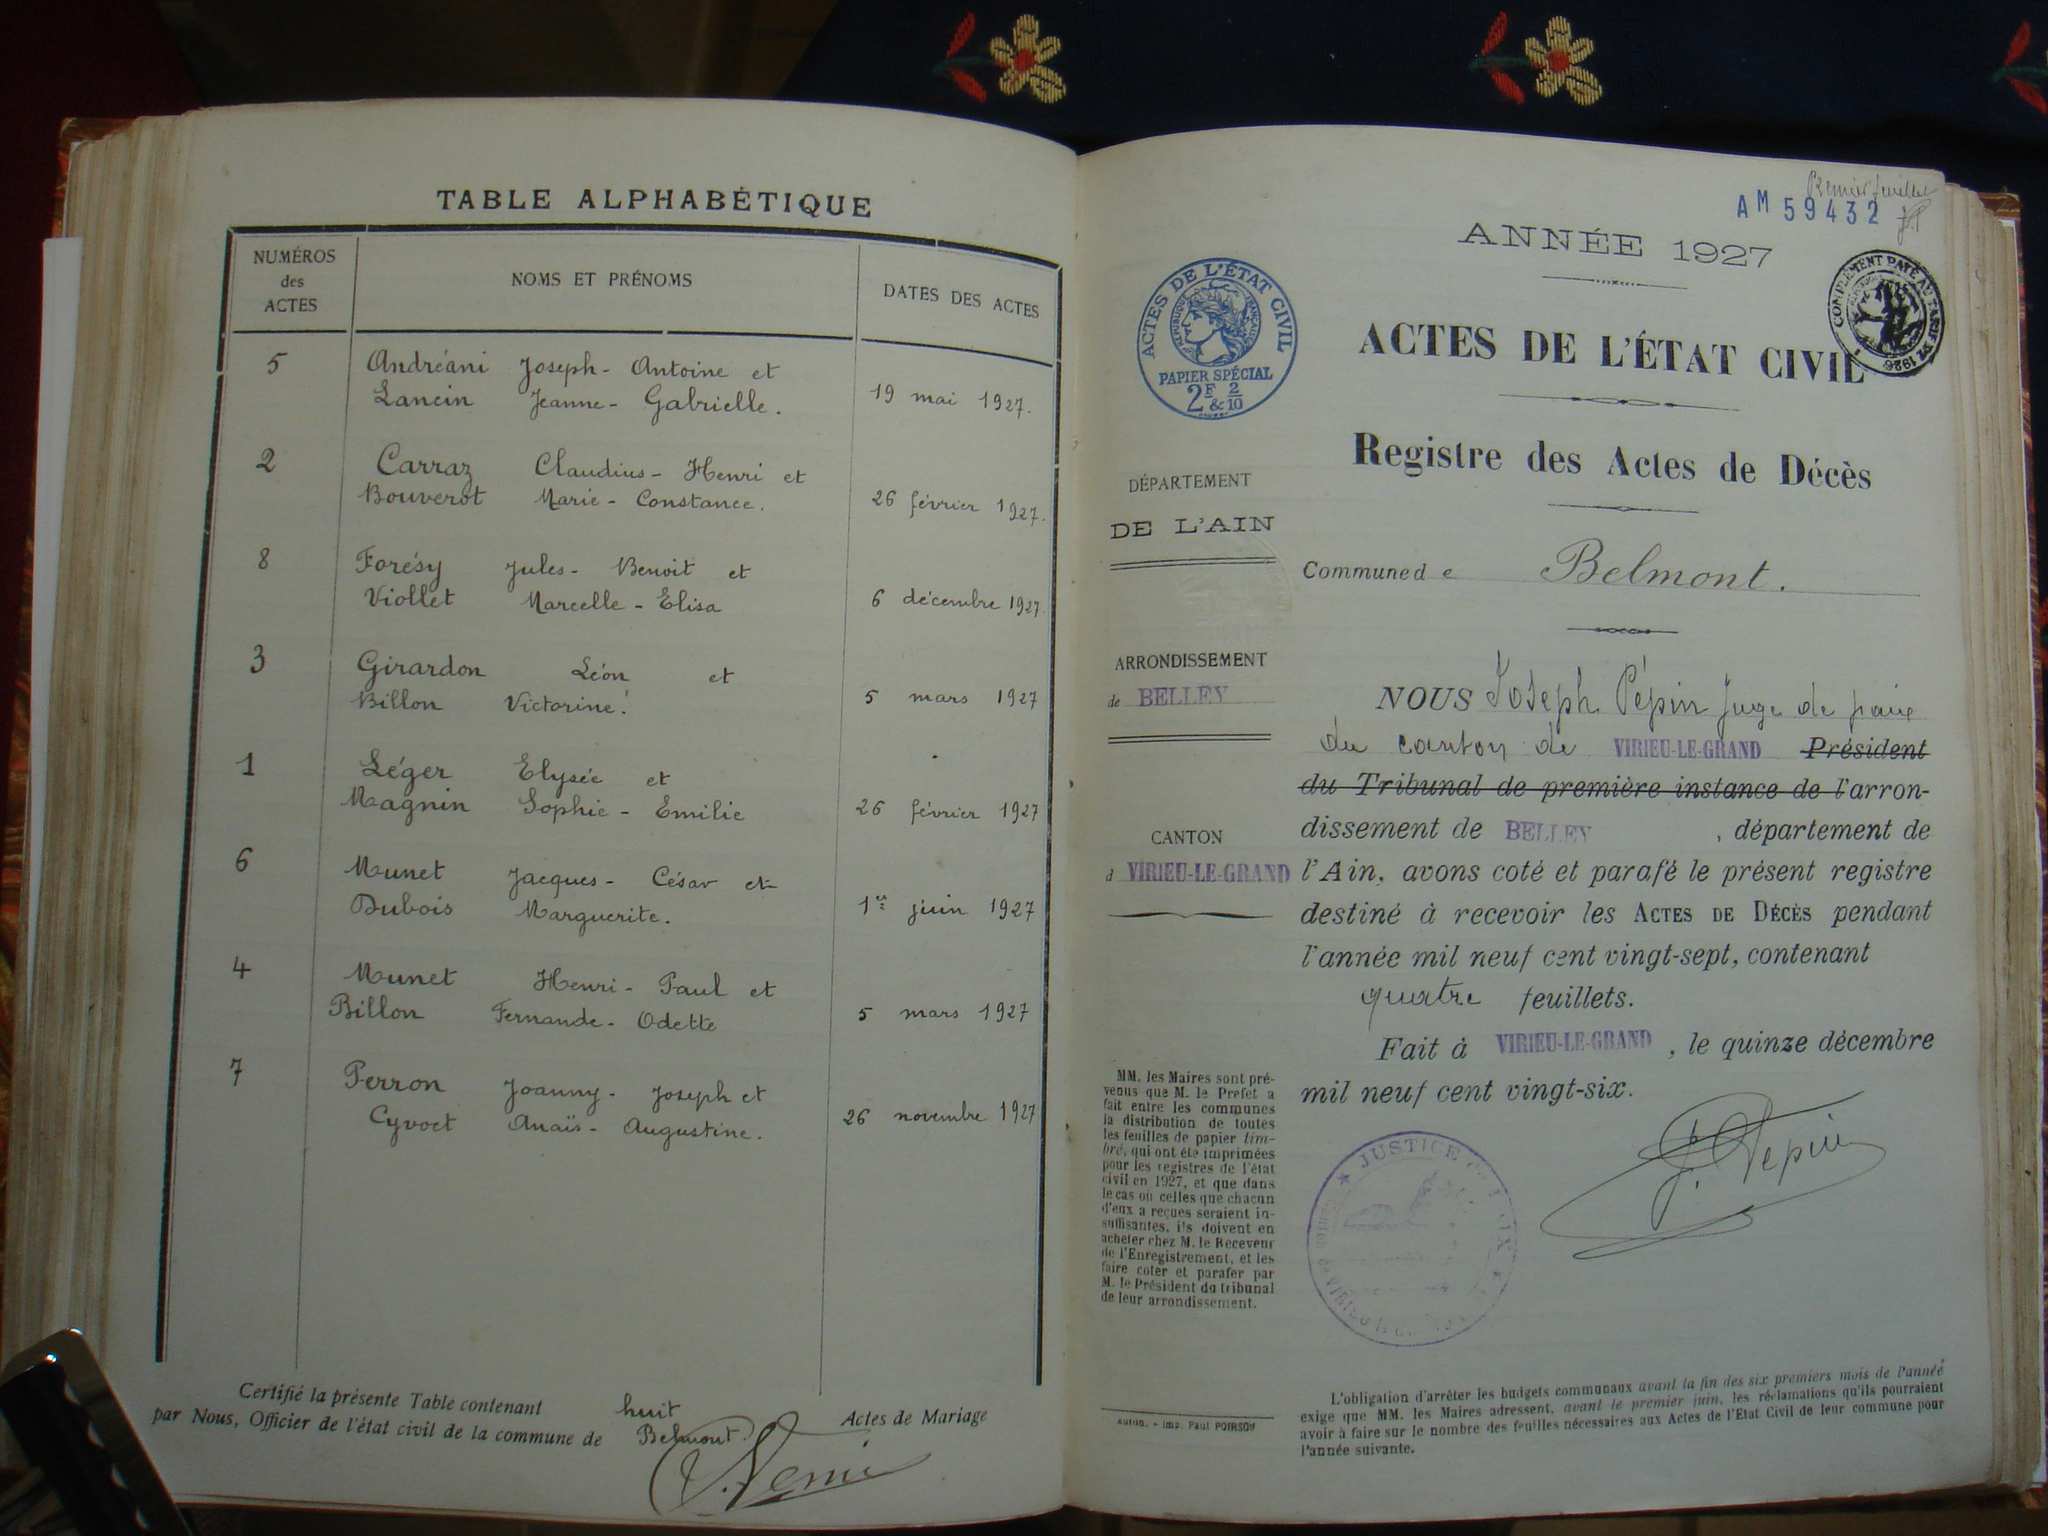 TABLE ALPHABÉTIQUE
NUMÉROS
des
ACTES
NOMS ET PRÉNOMS
DATES DES ACTES
5 Andréani Joseph-Antoine et
Lancin Jeanne-Gabrielle. 19 mai 1927.
2 Carraz Claudius-Henri et
Bouverot Marie-Constance. 26 février 1927.
8 Forésy Jules-Benoit et
Viollet Marcelle-Elisa 6 décembre 1927.
3 Girardon Léon et
Billon Victorine. 5 mars 1927
1 Léger Elysée et
Magnin Sophie-Emilie 26 février 1927
6 Munet Jacques-César et
Dubois Marguerite. 1er juin 1927
4 Munet Henri-Paul et
Billon Fernande-Odette 5 mars 1927
7 Perron Joanny-Joseph et
Cyvoct Anaïs-Augustine. 26 novembre 1927
Certifié la présente Table contenant huit Actes de Mariage
par Nous, Officier de l'état civil de la commune de Belmont.
Premier feuillet
AM 59432
ANNÉE 1927
ACTES DE L'ÉTAT CIVIL
RÉPUBLIQUE FRANÇAISE
PAPIER SPÉCIAL
2F & 2/10
COMPLÉMENT PAYÉ AU TARIF DE 1926
ACTES DE L'ÉTAT CIVIL
Registre des Actes de Décès
DÉPARTEMENT
DE L'AIN
Commune de Belmont.
ARRONDISSEMENT
de BELLEY
CANTON
d VIRIEU-LE-GRAND
NOUS Joseph Pépin Juge de paix
du canton de VIRIEU-LE-GRAND Président
du Tribunal de première instance de l'arron-
dissement de BELLEY, département de
l'Ain, avons coté et parafé le présent registre
destiné à recevoir les ACTES DE DÉCÈS pendant
l'année mil neuf cent vingt-sept, contenant
quatre feuillets.
Fait à VIRIEU-LE-GRAND, le quinze décembre
mil neuf cent vingt-six.
J. Pépin
JUSTICE
MM. les Maires sont pré-
venus que M. le Prefet a
fait entre les communes
la distribution de toutes
les feuilles de papier tim-
bré, qui ont été imprimées
pour les registres de l'état
civil en 1927, et que dans
le cas où celles que chacun
d'eux a reçues seraient in-
suffisantes, ils doivent en
acheter chez M. le Receveur
de l'Enregistrement, et les
faire coter et parafer par
M. le Président du tribunal
de leur arrondissement.
Imp. Paul POIRSON
L'obligation d'arrêter les budgets communaux avant la fin des six premiers mois de l'année
exige que MM. les Maires adressent, avant le premier juin, les réclamations qu'ils pourraient
avoir à faire sur le nombre des feuilles nécessaires aux Actes de l'Etat Civil de leur commune pour
l'année suivante.